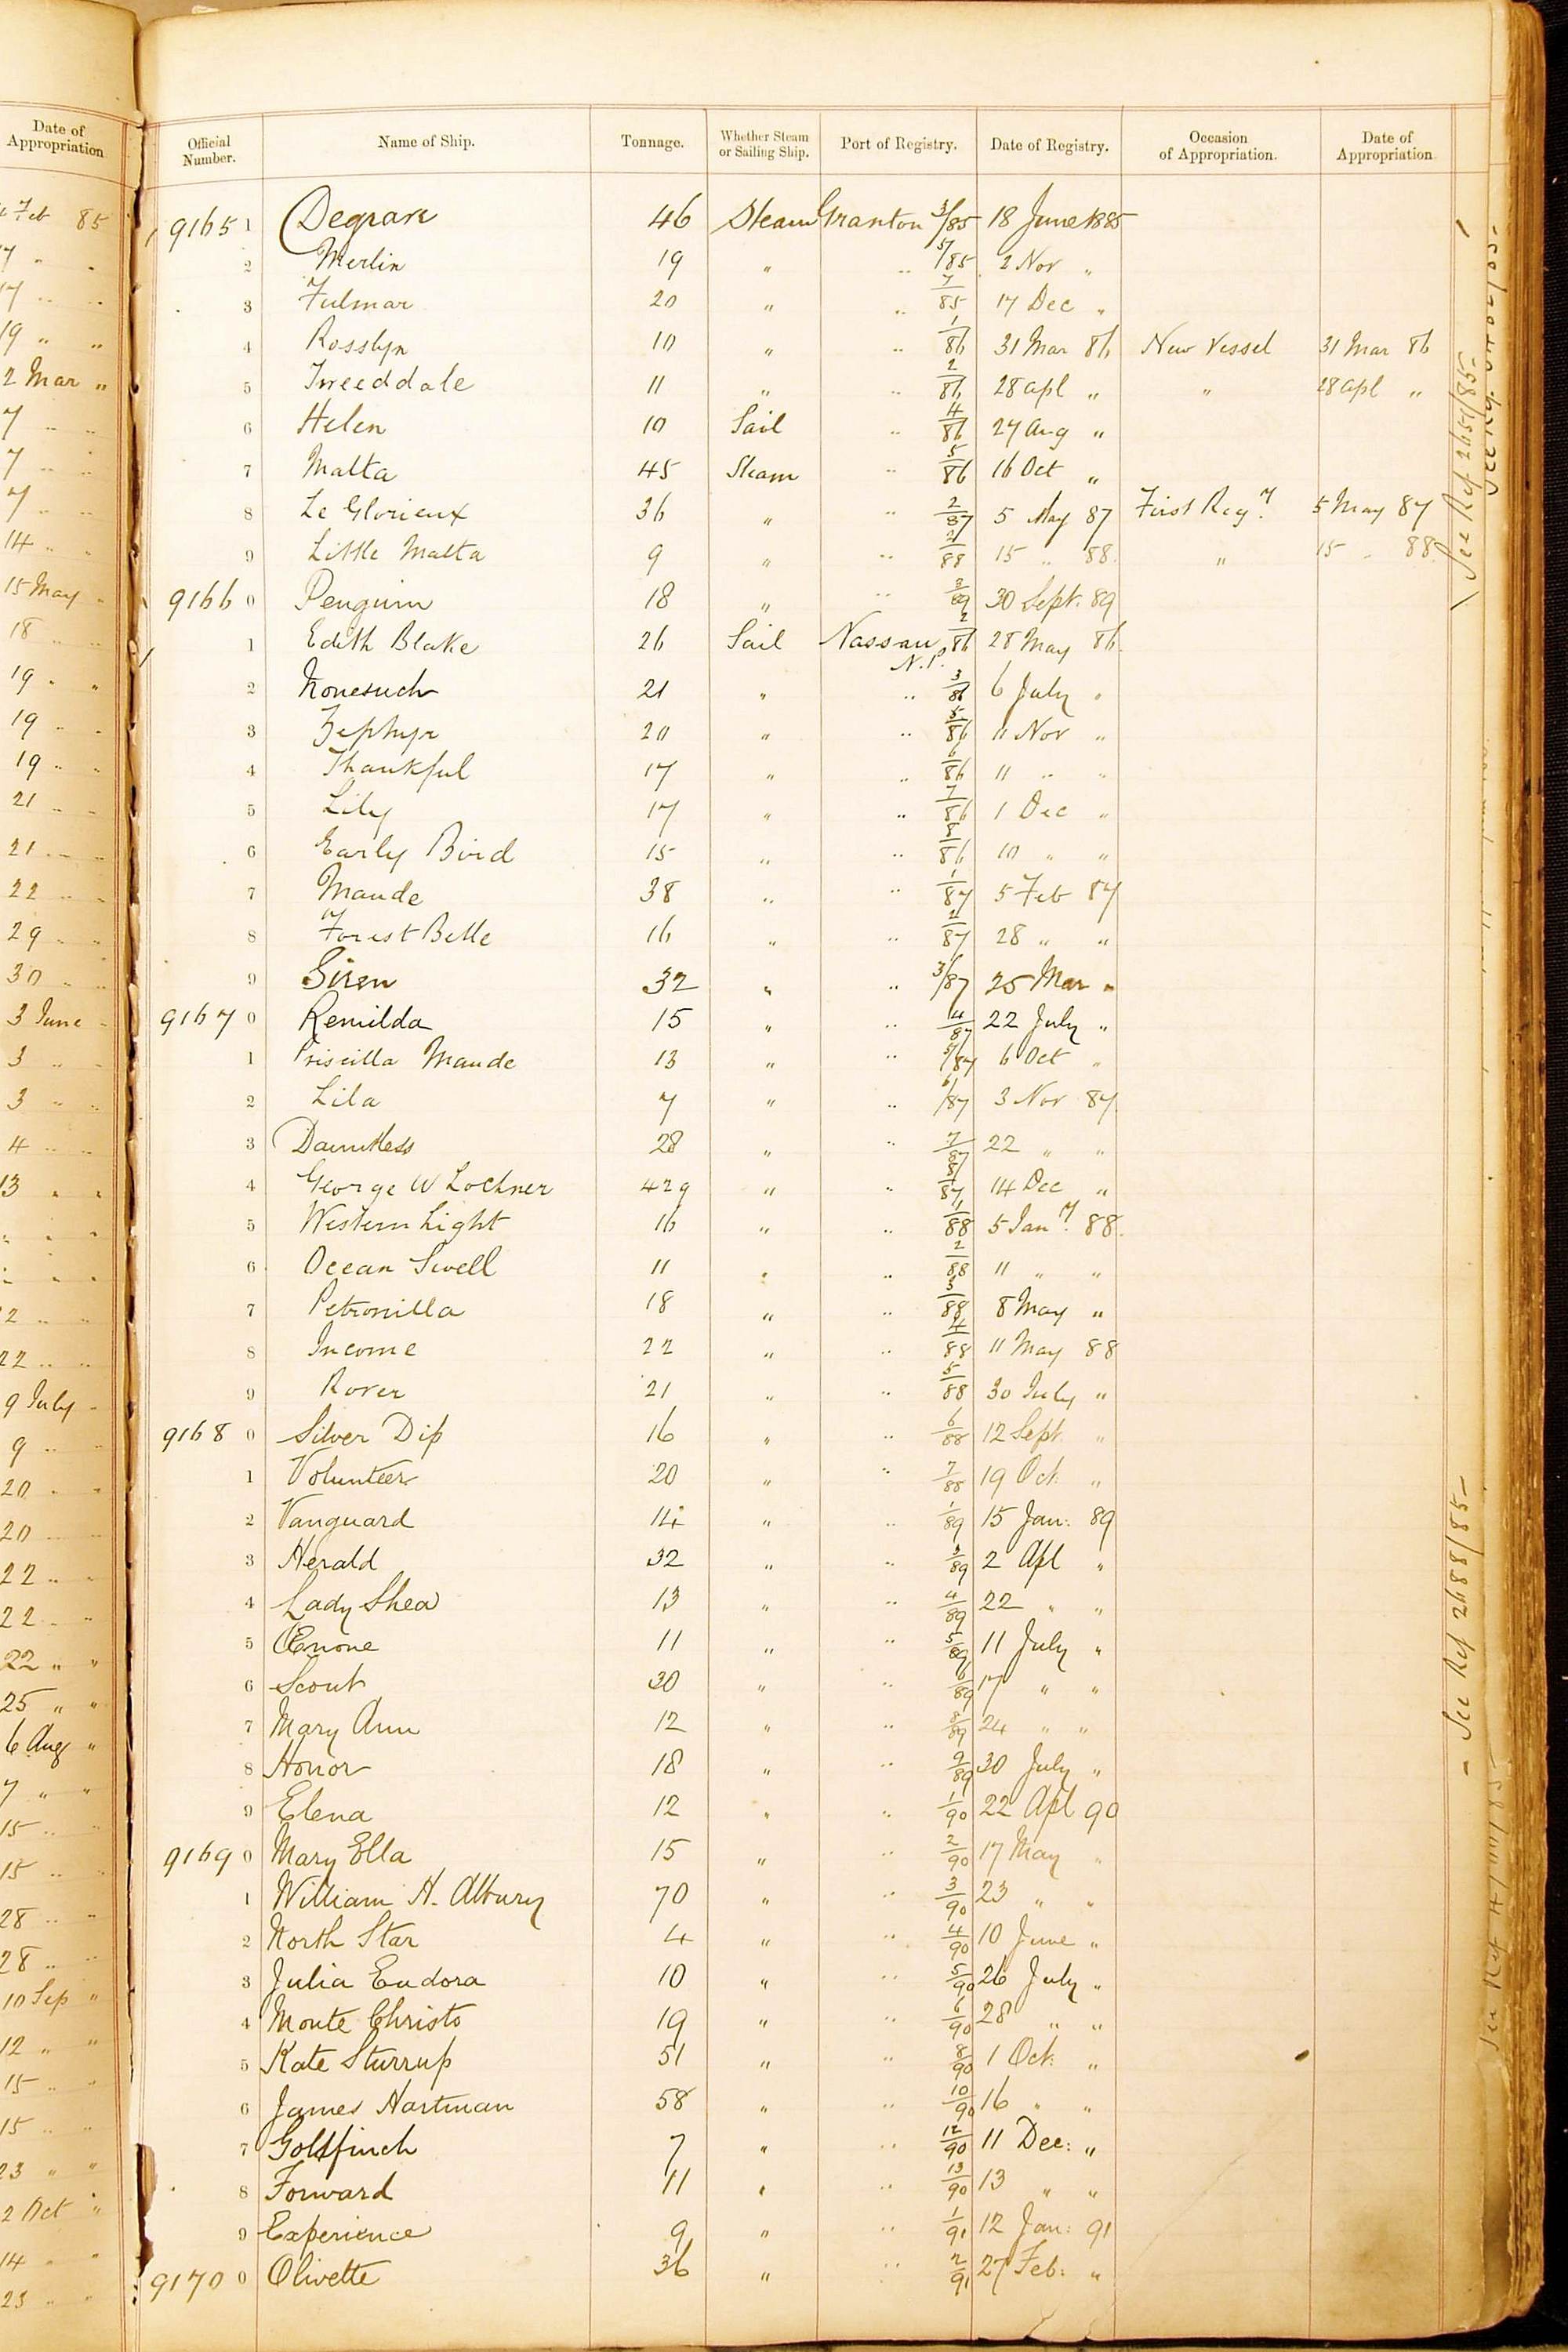 Date of Appropriation
Official Number. Name of Ship. Tonnage. Whether Steam or Sailing Ship. Port of Registry. Date of Registry. Occasion of Appropriation. Date of Appropriation.
9165 1 46 Steam Granton 3/85 18 June 1885
2 Merlin 19 " " 5/85 2 Nov "
3 Fulmar 20 " " 7/85 17 Dec "
4 Rosslyn 10 " " 1/86 31 Mar 86 New Vessel 31 Mar 86
5 Tweeddale 11 " " 2/86 28 Apl " " 28 Apl "
6 Helen 10 Sail " 4/86 27 Aug "
7 Malta 45 Steam " 5/86 16 Oct "
8 Le Glorieux 36 " " 2/87 5 May 87 First Regy. 5 May 87
9 Little Malta 9 " " 2/88 15 " 88 " 15 " 88
9166 0 Penguin 18 " " 2/89 30 Sept. 89
1 Edith Blake 26 Sail Nassau N.P. 2/86 28 May 86
2 Nonesuch 21 " " 3/86 6 July "
3 Zephyr 20 " " 5/86 11 Nov "
4 Thankful 17 " " 6/86 11 " "
5 Lily 17 " " 7/86 1 Dec "
6 Early Bird 15 " " 8/86 10 " "
7 Maude 38 " " 1/87 5 Feb 87
8 Forest Belle 16 " " 2/87 28 " "
9 Siren 32 " " 3/87 25 Mar "
9167 0 Remilda 15 " " 4/87 22 July "
1 Priscilla Maude 13 " " 5/87 6 Oct "
2 Lila 7 " " 6/87 3 Nov 87
3 Dauntless 28 " " 7/87 22 " "
4 George W Lochner 429 " " 8/87 14 Dec "
5 Western Light 16 " " 1/88 5 Jany. 88
6 Ocean Swell 11 " " 2/88 11 " "
7 Petronilla 18 " " 3/88 8 May "
8 Income 22 " " 4/88 11 May 88
9 Rover 21 " " 5/88 30 July "
9168 0 Silver Dip 16 " " 6/88 12 Sept. "
1 Volunteer 20 " " 7/88 19 Oct. "
2 Vanguard 14 " " 1/89 15 Jan: 89
3 Herald 32 " " 3/89 2 Apl "
4 Lady Shea 13 " " 4/89 22 " "
5 Œnone 11 " " 5/89 11 July "
6 Scout 30 " " 6/89 17 " "
7 Mary Ann 12 " " 8/89 24 " "
8 Honor 18 " " 9/89 30 July "
9 Elena 12 " " 1/90 22 Apl 90
9169 0 Mary Ella 15 " " 2/90 17 May "
1 William H. Albury 70 " " 3/90 23 " "
2 North Star 4 " " 4/90 10 June "
3 Julia Eudora 10 " " 5/90 26 July "
4 Monte Christo 19 " " 6/90 28 " "
5 Kate Sturrup 51 " " 8/90 1 Oct. "
6 James Hartman 58 " " 10/90 16 " "
7 Goldfinch 7 " " 12/90 11 Dec: "
8 Forward 11 " " 13/90 13 " "
9 Experience 9 " " 1/91 12 Jan: 91
9170 0 Olivette 36 " " 2/91 27 Feb: "
See Ref 2651/85
See Ref 2688/85
Feb 85
17 " "
17 " "
19 " "
2 Mar "
7 " "
7 " "
7 " "
14 " "
15 May "
18 " "
19 " "
19 " "
19 " "
21 " "
21 " "
22 " "
29 " "
30 " "
3 June "
3 " "
3 " "
4 " "
13 " "
22 " "
9 July "
9 " "
20 " "
20 " "
22 " "
22 " "
22 " "
25 " "
6 Aug "
7 " "
15 " "
15 " "
28 " "
28 " "
10 Sep "
12 " "
15 " "
15 " "
23 " "
2 Oct "
14 " "
23 " "